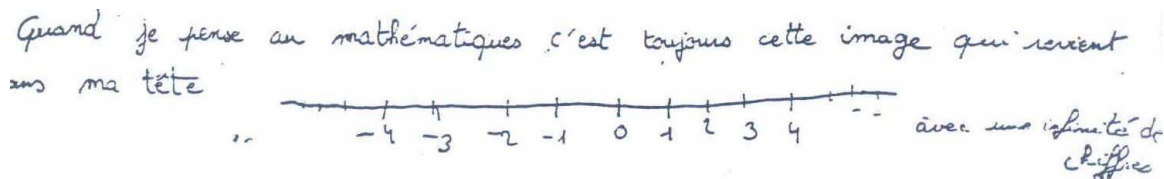 Quand je pense au mathématiques c'est toujours cette image qui revient
ans ma tête
.. -4 -3 -2 -1 0 1 2 3 4 -- avec une infinité de
chiffres